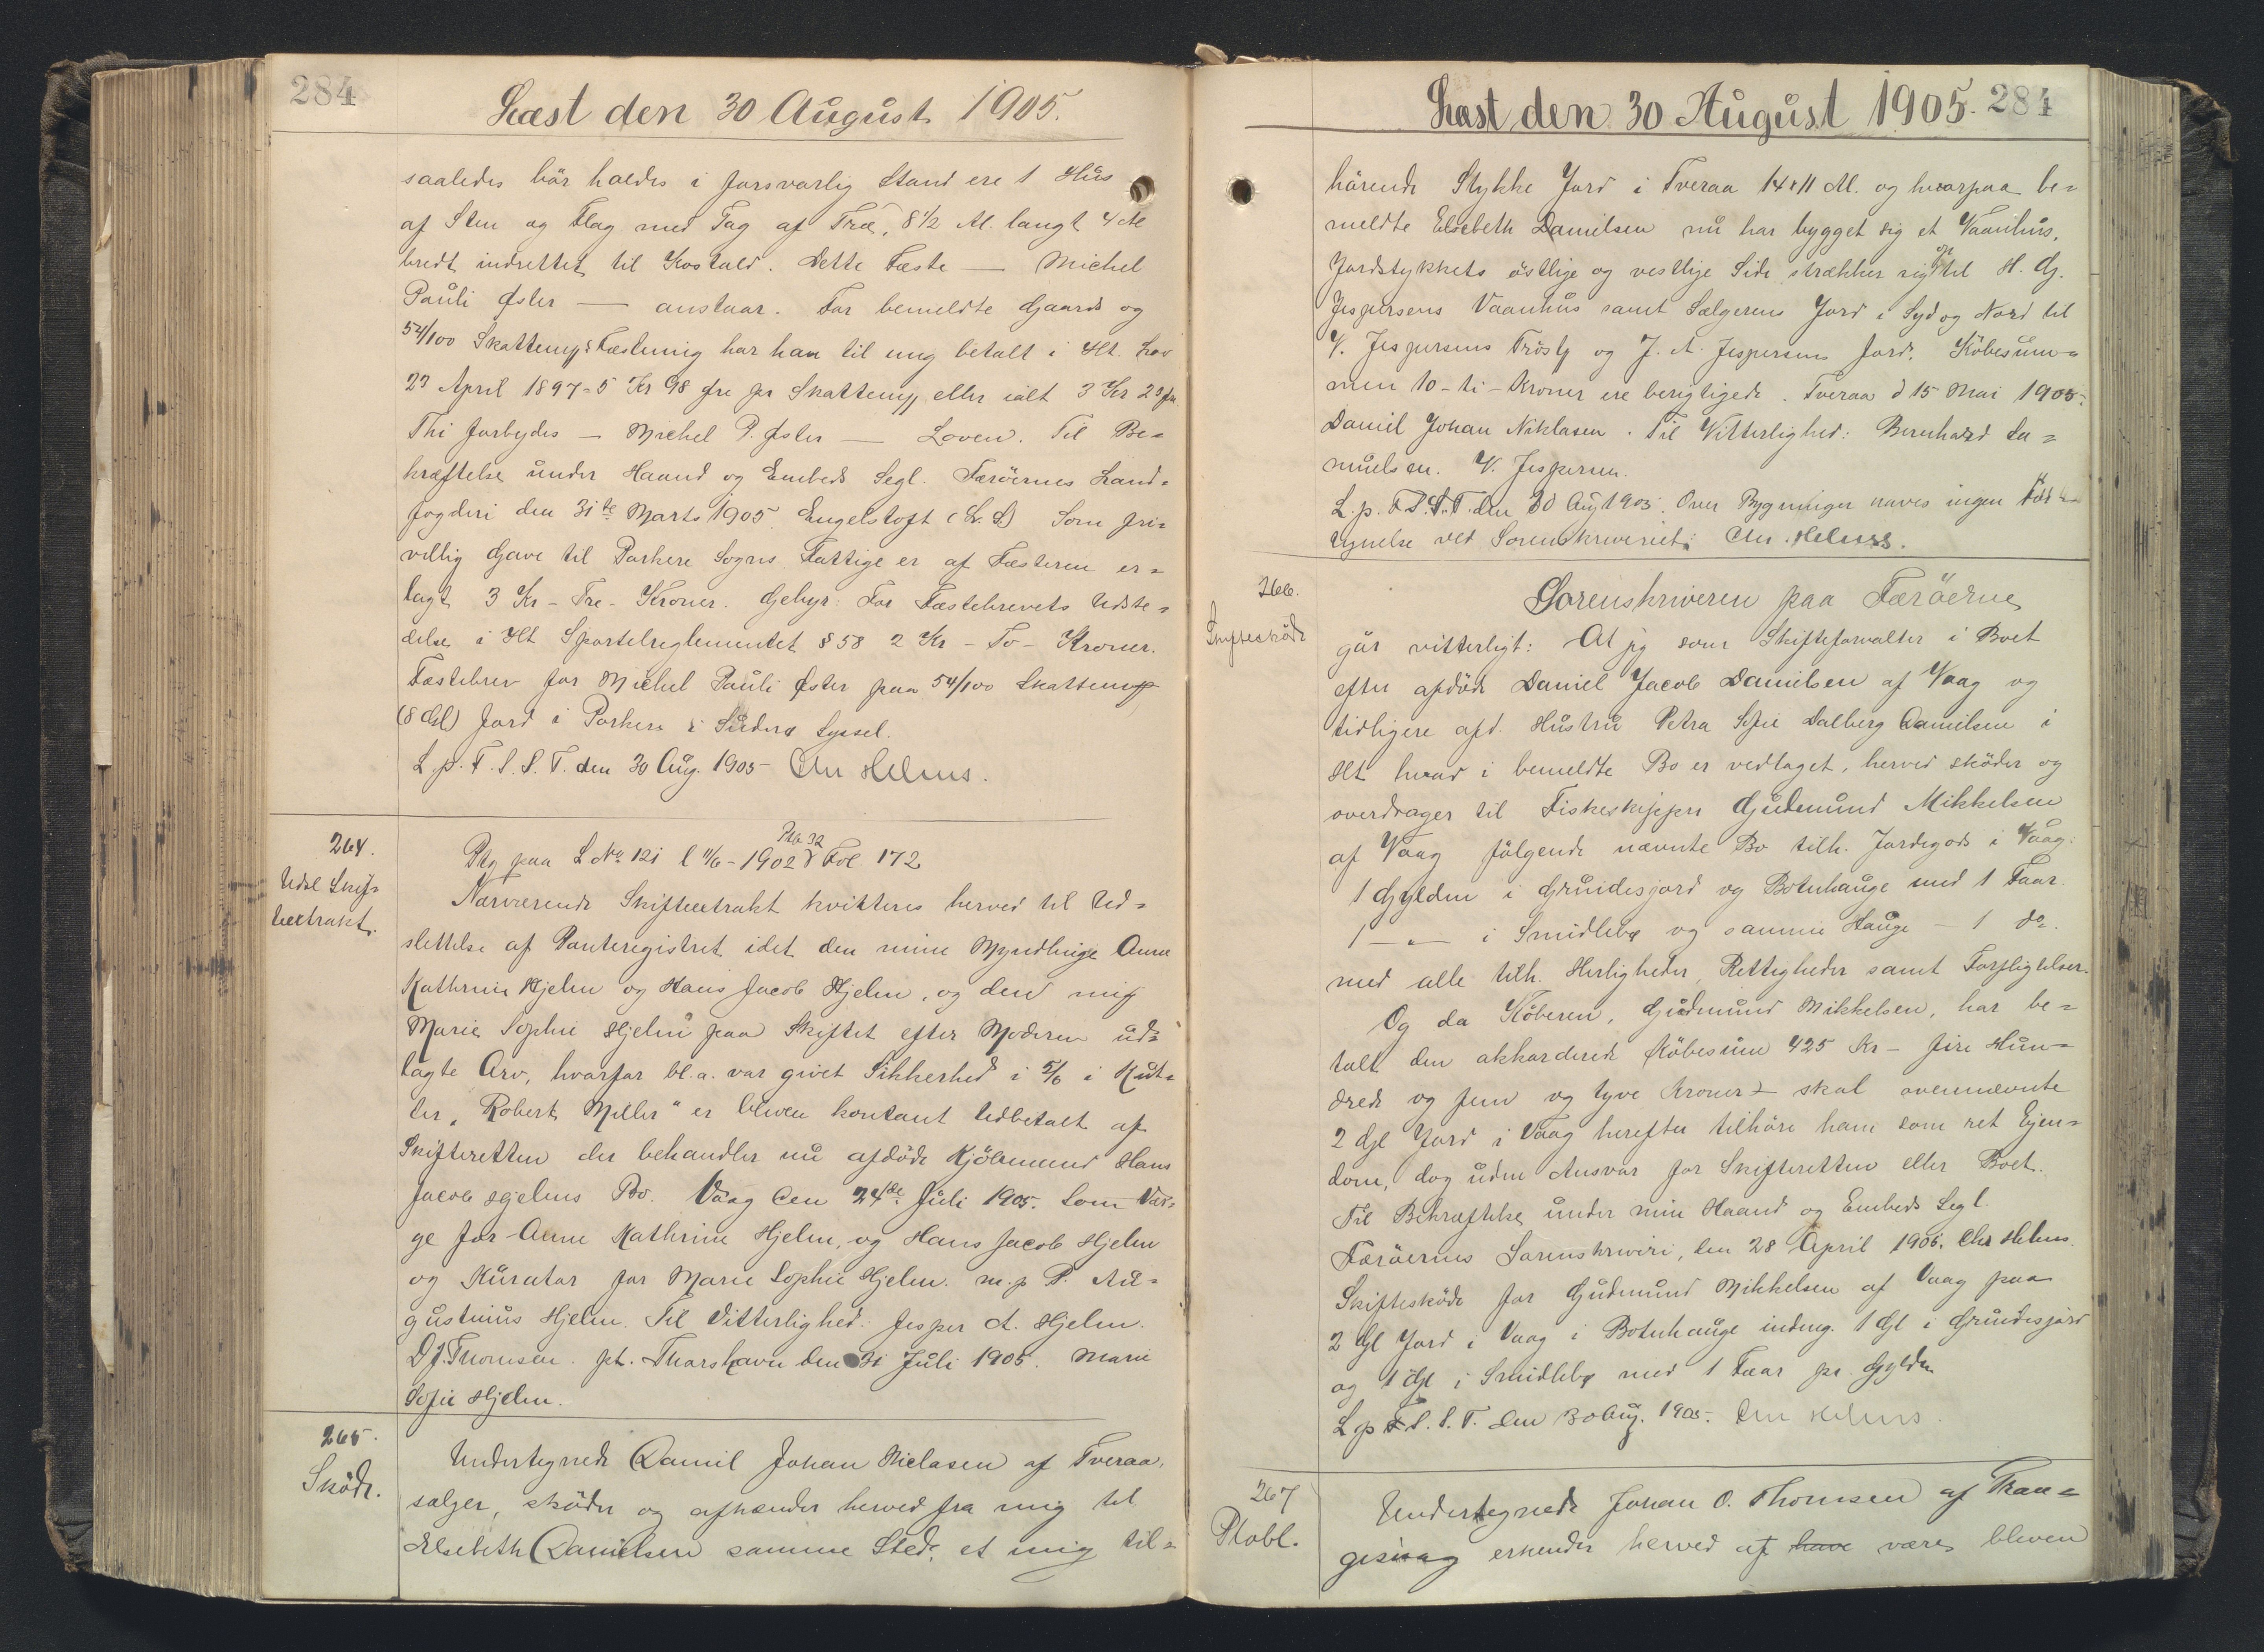 284
Læst den 30 August 1905.
saaledes bör holdes i forsvarlig Stand ere 1 Hus
af Sten og Flag med Tag af Træ, 8 1/2 Al. langt 4 Al
bredt indrettet til Kostald. Dette Fæste — Michel
Pauli Øster — anstaar. For bemeldte Gaards og
54/100 Skattemp's Fæstning har han til mig betalt i Hlt. Lov
27 April 1897 - 5 Kr 98 Øre pr Skattemp eller ialt 3 Kr 23 Øre
Thi forbydes — Michel P. Øster — Loven. Til Be=
kræftelse under Haand og Embeds Segl. Færöernes Land=
fogderi den 31te Marts 1905. Engelstoft (L. S.) Som fri=
villig Gave til Porkere Sogns Fattige er af Fæsteren er=
lagt 3 Kr - Tre - Kroner. Gebyr: For Fæstebrevets Udste=
delse i Hlt Sportelreglementet § 58 2 Kr - To - Kroner.
Fæstebrev for Michel Pauli Øster paa 54/100 Skattemp
(8 Gl) Jord i Porkere i Suderø Syssel.
L. p. F. S. S. T. den 30 Aug. 1905 - Chr Helms.
264.
Udsl Skif=
teextrakt.
Ptg paa L No 121 l 11/6 - 1902 Ptb 32 Fol 172
Nærværende Skifteextrakt kvitteres herved til Ud=
slettelse af Panteregistret idet den mine Myndlinge Anna
Kathrine Hjelm og Hans Jacob Hjelm, og den mig
Marie Sophie Hjelm paa Skiftet efter Moderen ud=
lagte Arv, hvorfor bl. a. var givet Sikkerhed i 5/6 i Kut=
ter "Robert Miller" er bleven kontant Udbetalt af
Skifteretten der behandler nu afdöde Kjöbmand Hans
Jacob Hjelms Bo. Vaag den 24de Juli 1905. Som Vær=
ge for Anne Kathrine Hjelm, og Hans Jacob Hjelm
og Kurator for Marie Sophie Hjelm. m. p P. Au=
gustinus Hjelm. Til Vitterlighed: Jesper A. Hjelm.
D J. Thomsen. pt. Thorshavn den 31 Juli 1905. Marie
Sofie Hjelm.
265.
Sköde.
Undertegnede Daniel Johan Niclasen af Tveraa,
sælger, sköder og afhænder herved fra mig til
Elsebeth Danielsen samme Sted, et mig til=
Læst den 30 August 1905. 284
hörende Stykke Jord i Tveraa 14 x 11 Al. og hvorpaa be=
meldte Elsebeth Danielsen nu har bygget sig et Vaanhus,
Jordstykkets östlige og vestlige Side strækker sig op til H. G.
Jespersens Vaanhus samt Sælgerens Jord i Syd og Nord til
V. Jespersens Tröstg og J. A. Jespersens Jord. Köbesum=
men 10 - ti - Kroner ere berigtigede. Tveraa d 15 Mai 1905.
Daniel Johan Niklasen. Til Vitterlighed: Bernhard Sa=
muelsen. V. Jespersen.
L. p. F. S. S. T. den 30 Aug 1905. Over Bygninger haves ingen
tegnelse ved Sorenskriveriet. Chr. Helms.
266.
Skiftesköde
Sorenskriveren paa Færöerne
gör vitterligt: At jeg som Skifteforvalter i Boet
efter afdöde Daniel Jacob Danielsen af Vaag og
tidligere afd. Hustru Petra Sofie Dalberg Danielsen i
Hlt hvad i bemeldte Bo er vedtaget, herved sköder og
overdrager til Fiskeskipper Gudmund Mikkelsen
af Vaag fölgende nævnte Bo tilh. Jordegods i Vaag:
1 Gylden i Gruidesjord og Botnhauge med 1 Faar.
1 — " — i Smidlebø og samme Hauge - 1 do.
med alle tilh. Herligheder, Rettigheder samt Forpligtelser.
Og da Köberen, Gudmund Mikkelsen, har be=
talt den akkorderede Köbesum 425 Kr - fire Hun=
drede og fem og tyve Kroner - skal ovennævnte
2 Gl Jord i Vaag herefter tilhöre ham som ret Ejen=
dom, dog uden Ansvar for Skifteretten eller Boet.
Til Bekræftelse under min Haand og Embeds Segl.
Færöernes Sorenskriveri, den 28 April 1905. Chr Helms.
Skiftesköde for Gudmund Mikkelsen af Vaag paa
2 Gl Jord i Vaag i Botnhauge indmg. 1 Gl i Gruidesjord
og 1 Gl i Smidlebø med 1 Faar pr. Gylden
L p F. S. S. T. den 30 Aug. 1905. Chr Helms.
267
Ptobl.
Undertegnede Johan O. Thomsen af Tran=
gisvaag erkender herved at have være bleven